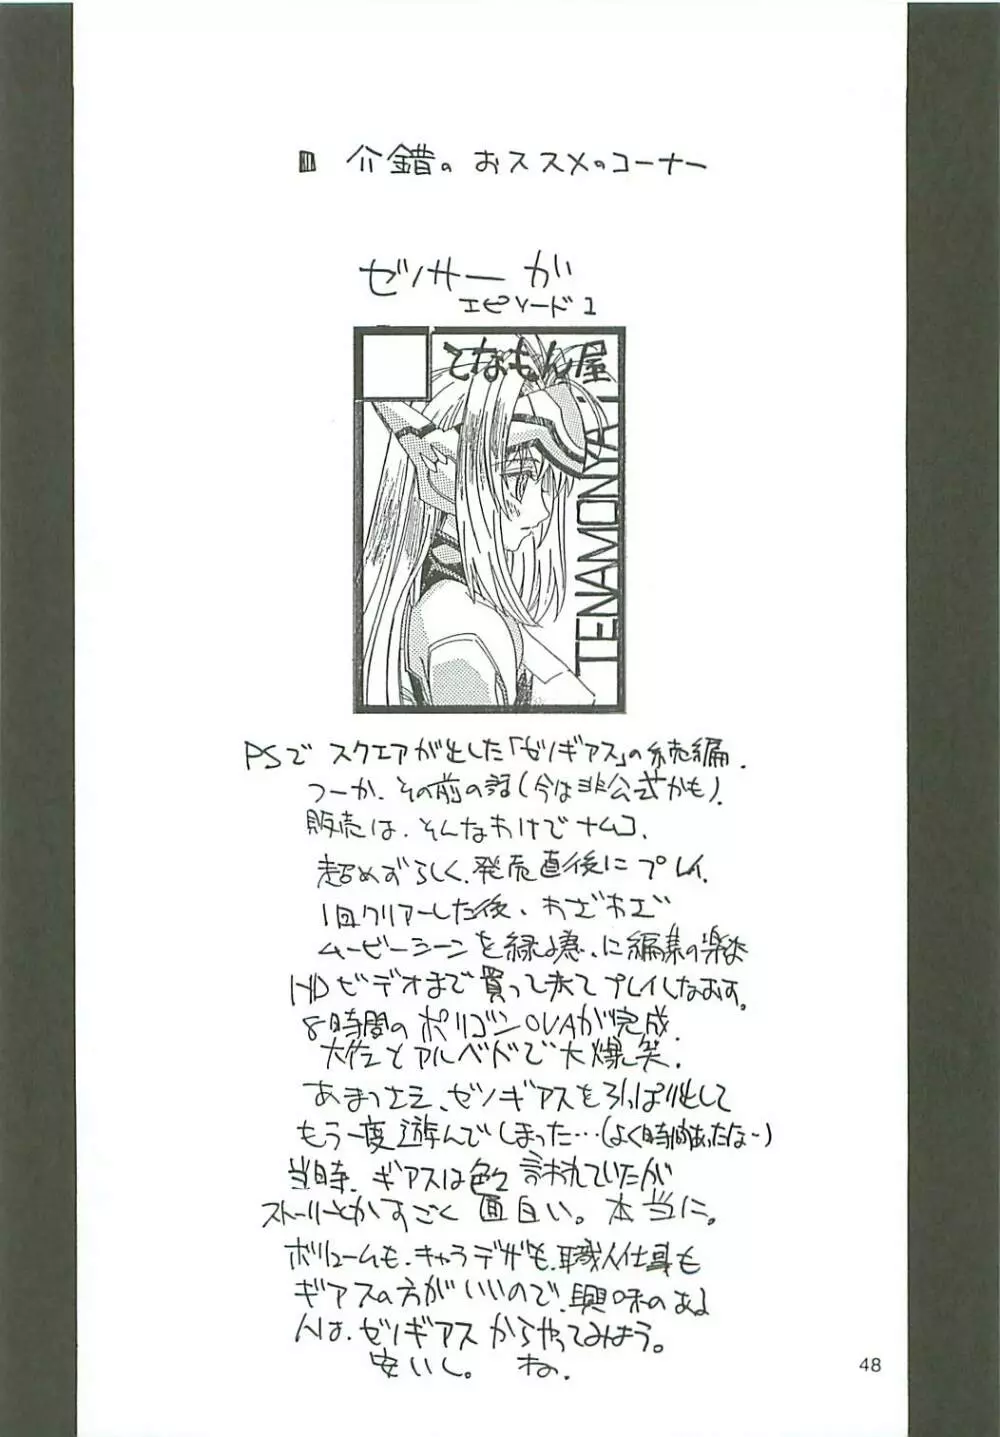 介錯の おススメのコーナー
ゼノサーガ
エピソード1
てなもん屋
TENAMONYA
PSで スクエアが出した「ゼノギアス」の続編.
つーか、その前の話(今は非公式かも).
販売は、そんなわけでナムコ.
超めずらしく、発売直後に プレイ.
1回クリアーした後、わざわざ
ムービーシーンを録る為、に編集の楽な
HDビデオまで買って来てプレイしなおす。
8時間のポリゴンOVAが完成.
大佐とアルベドで大爆笑.
あまつさえ、ゼノギアスをひっぱり出して
もう一度遊んでしまった…(よく時間あったな〜)
当時、ギアスは色々言われていたが
ストーリーとかすごく 面白い。本当に。
ボリュームも、キャラデザも、職人仕事も
ギアスの方がいいので、興味のある
人は、ゼノギアスからやってみよう。
安いし。 ね.
48